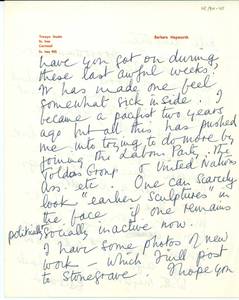 Trewyn Studio
St. Ives
Cornwall
Barbara Hepworth
have you got on during
these last awful weeks?
It has made one feel
somewhat sick inside. I
became a pacifist two years
ago but all this has pushed
me into trying to do more by
joining the Labour Party, The
Toldas Group & United Nations
Ass. etc. One can scarcely
look "earlier sculptures in
the face" if one remains
politically
socially inactive now.
I have some photos of new
work – which I'll post
to Stonegrave. I hope you